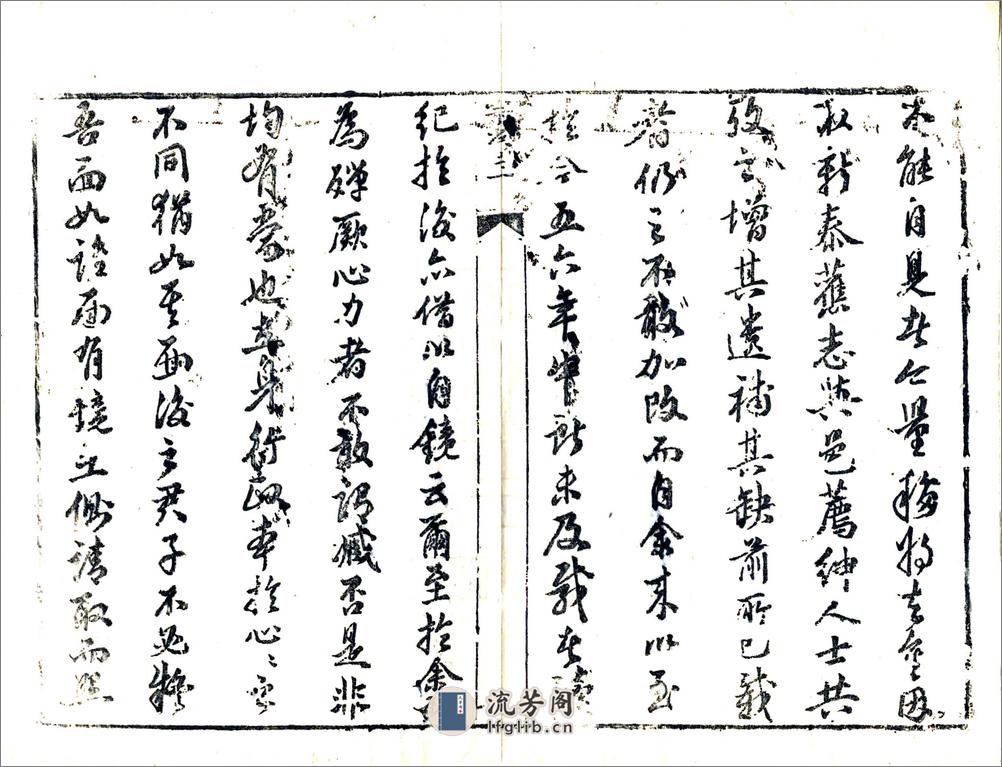 不能自見者仁量移將去令因
取新泰舊志與邑薦紳人士共
攷之增其遺補其缺前所已載
者仍之不敢加改而自余來以至
於今五六年中所未及載者
紀於後亦借以自鏡云爾至於余
為殫厥心力者不敢謂臧否是非
均有 也 身行政本於心心之
不同猶如其面後之君子不必疑
吾面如 面有境之側請取而照
流芳阁
lfglib.cn